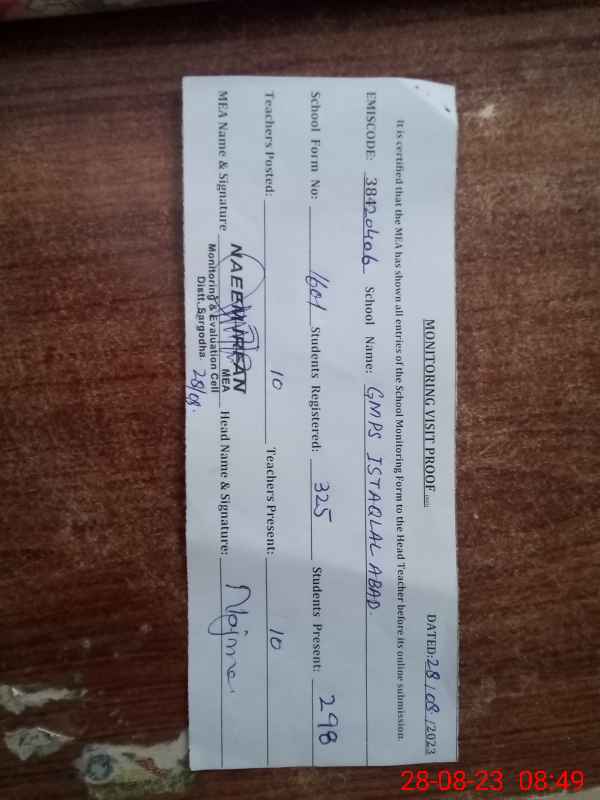 MONITORING VISIT PROOF
DATED: 28/08/2023
It is certified that the MEA has shown all entries of the School Monitoring Form to the Head Teacher before its online submission.
EMISCODE: 38420406 School Name: GMPS ISTAQLAL ABAD.
School Form No: 1601 Students Registered: 325 Students Present: 298
Teachers Posted: 10 Teachers Present: 10
MEA Name & Signature NAEEM IRFAN Head Name & Signature: Najma
MEA
Monitoring & Evaluation Cell
Distt. Sargodha
28/08.
28-08-23 08:49